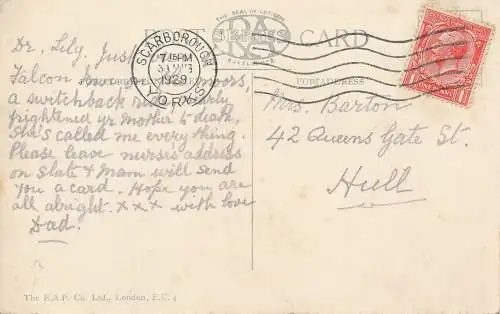 THE SEAL OF
POST CARD
RA
SERIES
SCARBOROUGH
7 15 PM
1929
YORKS
ONE PENNY
FOR ADDRESS
Dr. Lily. Just
Falcon moors,
a switchback nearly
frightened yr Mother to death,
She's called me everything.
Please leave nurse's address
on Slate & Mam will send
you a card. Hope you are
all alright. x x x with love
Dad.
Mrs. Barton
42 Queens Gate St.
Hull
The R.A.P. Co. Ltd., London, E.C. 4